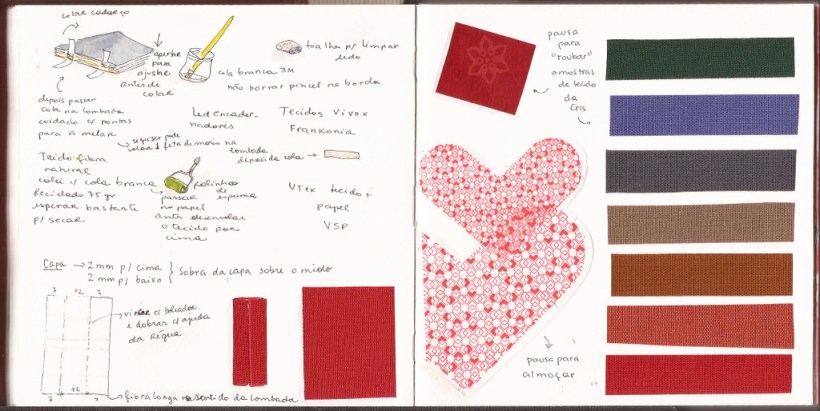 colar cadarço
apertar
para
ajustar
antes de
colar
toalha p/ limpar
dedo
cola branca 3M
não borrar pincel na borda
depois passar
cola na lombada
cuidado c/ pontas
para ñ melar
se quiser pode
colar 1 fita de morim na
lombada
depois da cola
Led encader-
nadores
Tecidos Vivox
Frankonia
Tecido fibra
natural
colei c/ cola branca
Reciclado 75 gr
esperar bastante
p/ secar
Rolinho
de
espuma
passar
no papel
antes desenrolar
o tecido por
cima
VTex tecido +
papel
VSP
Capa → 2 mm p/ cima
2 mm p/ baixo
Sobra da capa sobre o miolo
7 12 7
vincar c/ boleador
e dobrar c/ ajuda
da Régua
7 12 7
fibra longa no sentido da lombada
pausa
para
"roubar"
amostras
de tecido
da
Cris
pausa para
almoçar